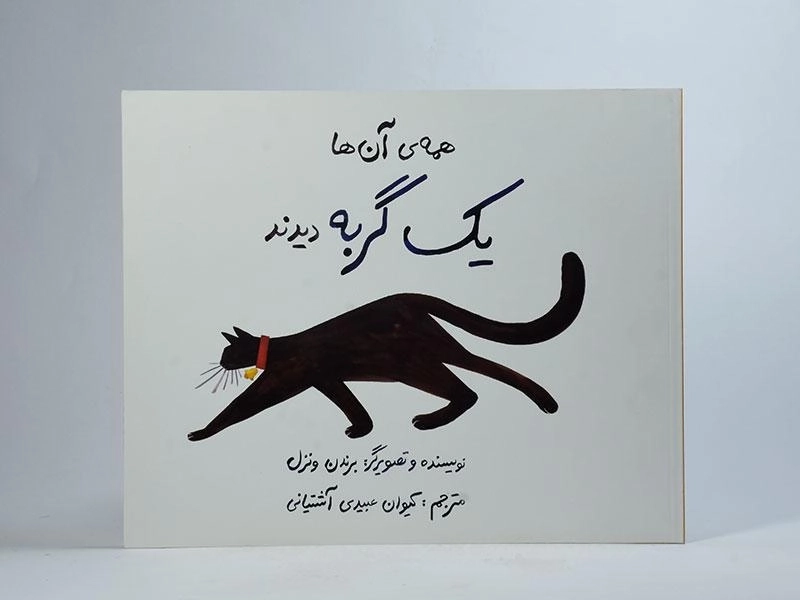 همه‌ی آن‌ها
یک گربه دیدند
نویسنده و تصویرگر: برندن ونزل
مترجم: کیوان عبیدی آشتیانی